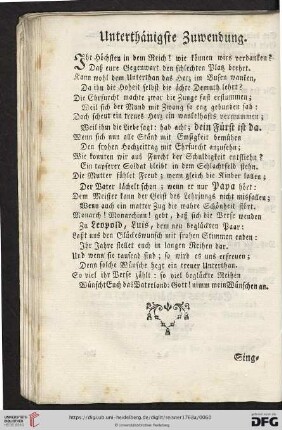 Unterthänigste Zuwendung.
Ihr Höchsten in dem Reich! wie können wirs verdanken?
Daß eure Gegenwart den schlechten Platz beehrt.
Kann wohl dem Unterthan das Herz im Busen wanken,
Da ihn die Hoheit selbst die ächte Demuth lehrt?
Die Ehrfurcht machte zwar die Zunge fast erstummen;
Weil sich der Mund mit Zwang so eng gebunden sah:
Doch scheut ein treues Herz ein wankelhafts vermummen;
Weil ihm die Liebe sagt: hab acht; dein Fürst ist da.
Wenn sich nun alle Ständ mit Emsigkeit bemühen
Den frohen Hochzeittag mit Ehrfurcht anzusehn;
Wie konnten wir aus Furcht der Schuldigkeit entfliehen?
Ein tapferer Soldat bleibt in dem Schlachtfeld stehn.
Die Mutter fühlet Freud; wenn gleich die Kinder lallen;
Der Vater lächelt schon; wenn er nur Papa hört:
Dem Meister kann der Geist des Lehrjungs nicht misfallen;
Wenn auch ein matter Zug die wahre Schönheit stört.
Monarch! Monarchinn! gebt, daß sich die Verse wenden
Zu Leopold, Luis, dem neu beglückten Paar:
Laßt uns den Glückeswunsch mit frohen Stimmen enden:
Ihr Jahre stellet euch in langen Reihen dar.
Und wenn sie tausend sind; so wird es uns erfreuen;
Denn solche Wünsche hegt ein treuer Unterthan.
So viel ihr Verse zählt: so viel beglückte Reihen
Wünscht Euch das Vaterland: Gott! nimm mein Wünschen an.
Sing-
https://digi.ub.uni-heidelberg.de/diglit/
© Universitätsbibliothek Heidelberg
UNIVERSITÄTS-
BIBLIOTHEK
HEIDELBERG
gefördert durch die
DFG